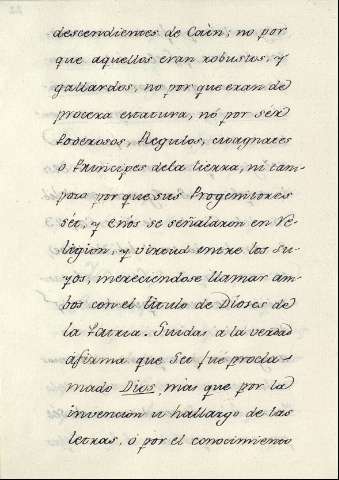 descendientes de Caèn; no por
que aquellos eran robustos, y
gallardos, no por que eran de
procera estatura, nó por sér
Poderosos, Regulos, magnates
ó Principes dela tierra, ni tam-
poco por que sus Progenitores
Sét, y Enós se señalarón en Re-
ligion, y virtud entre los su-
yos, mereciendose llamar am-
bos con el titulo de Dioses de
la Patria. Suidas a la verdad
afirma que Set fué procla-
mado Dios, mas que por la
invención u hallazgo de las
letras, ó por el conocimiento